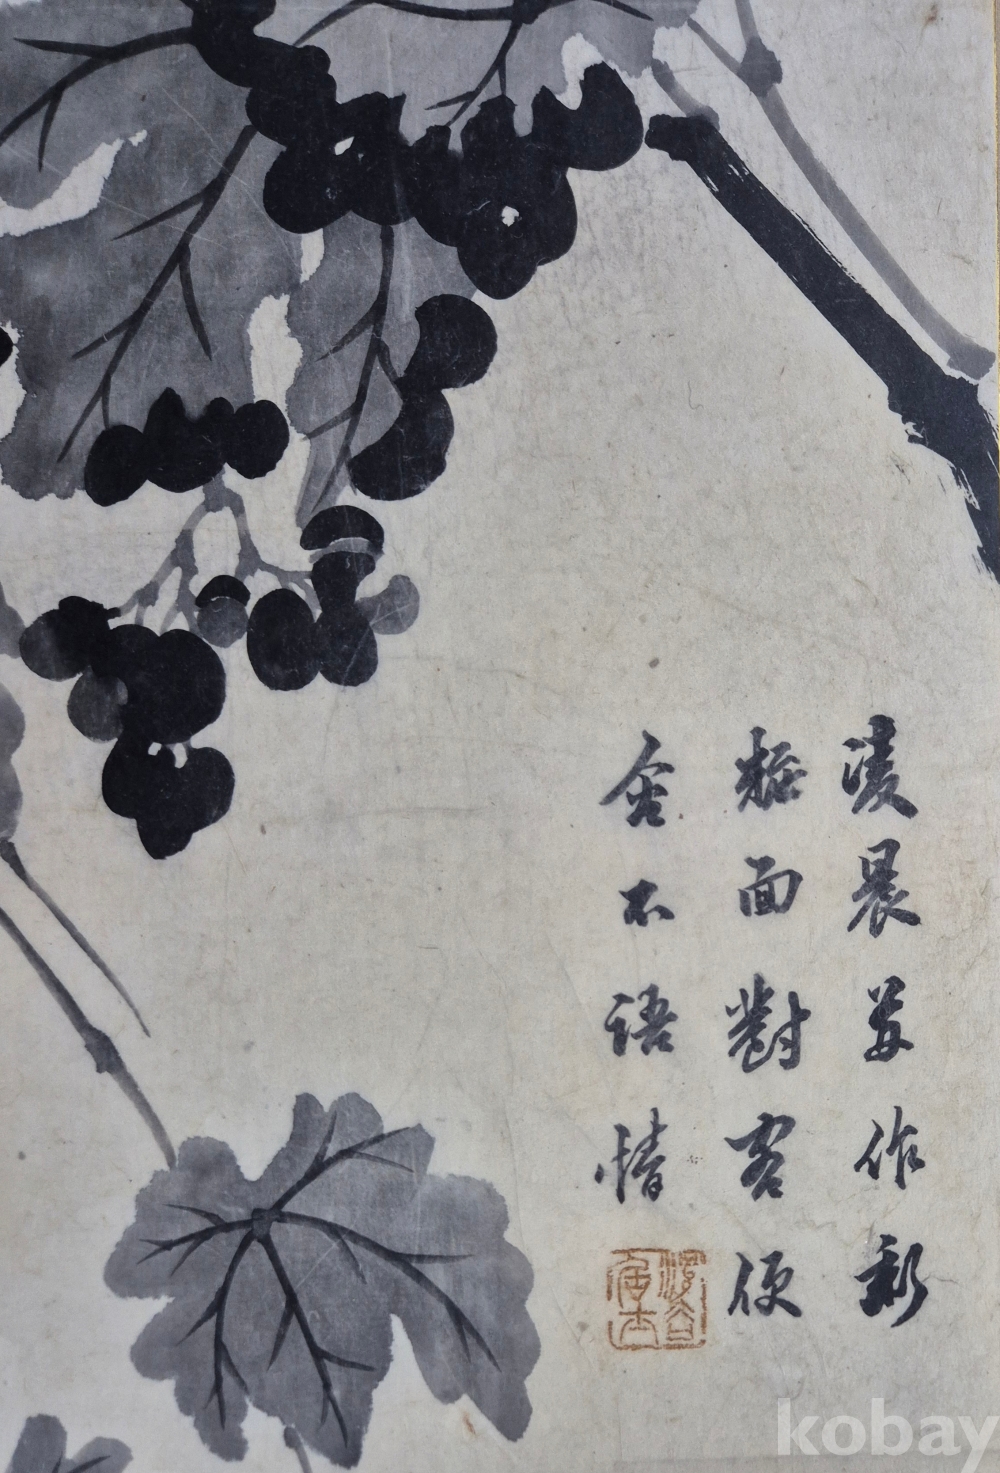 淩晨並作新
粧面對客便
含不語情
kobay